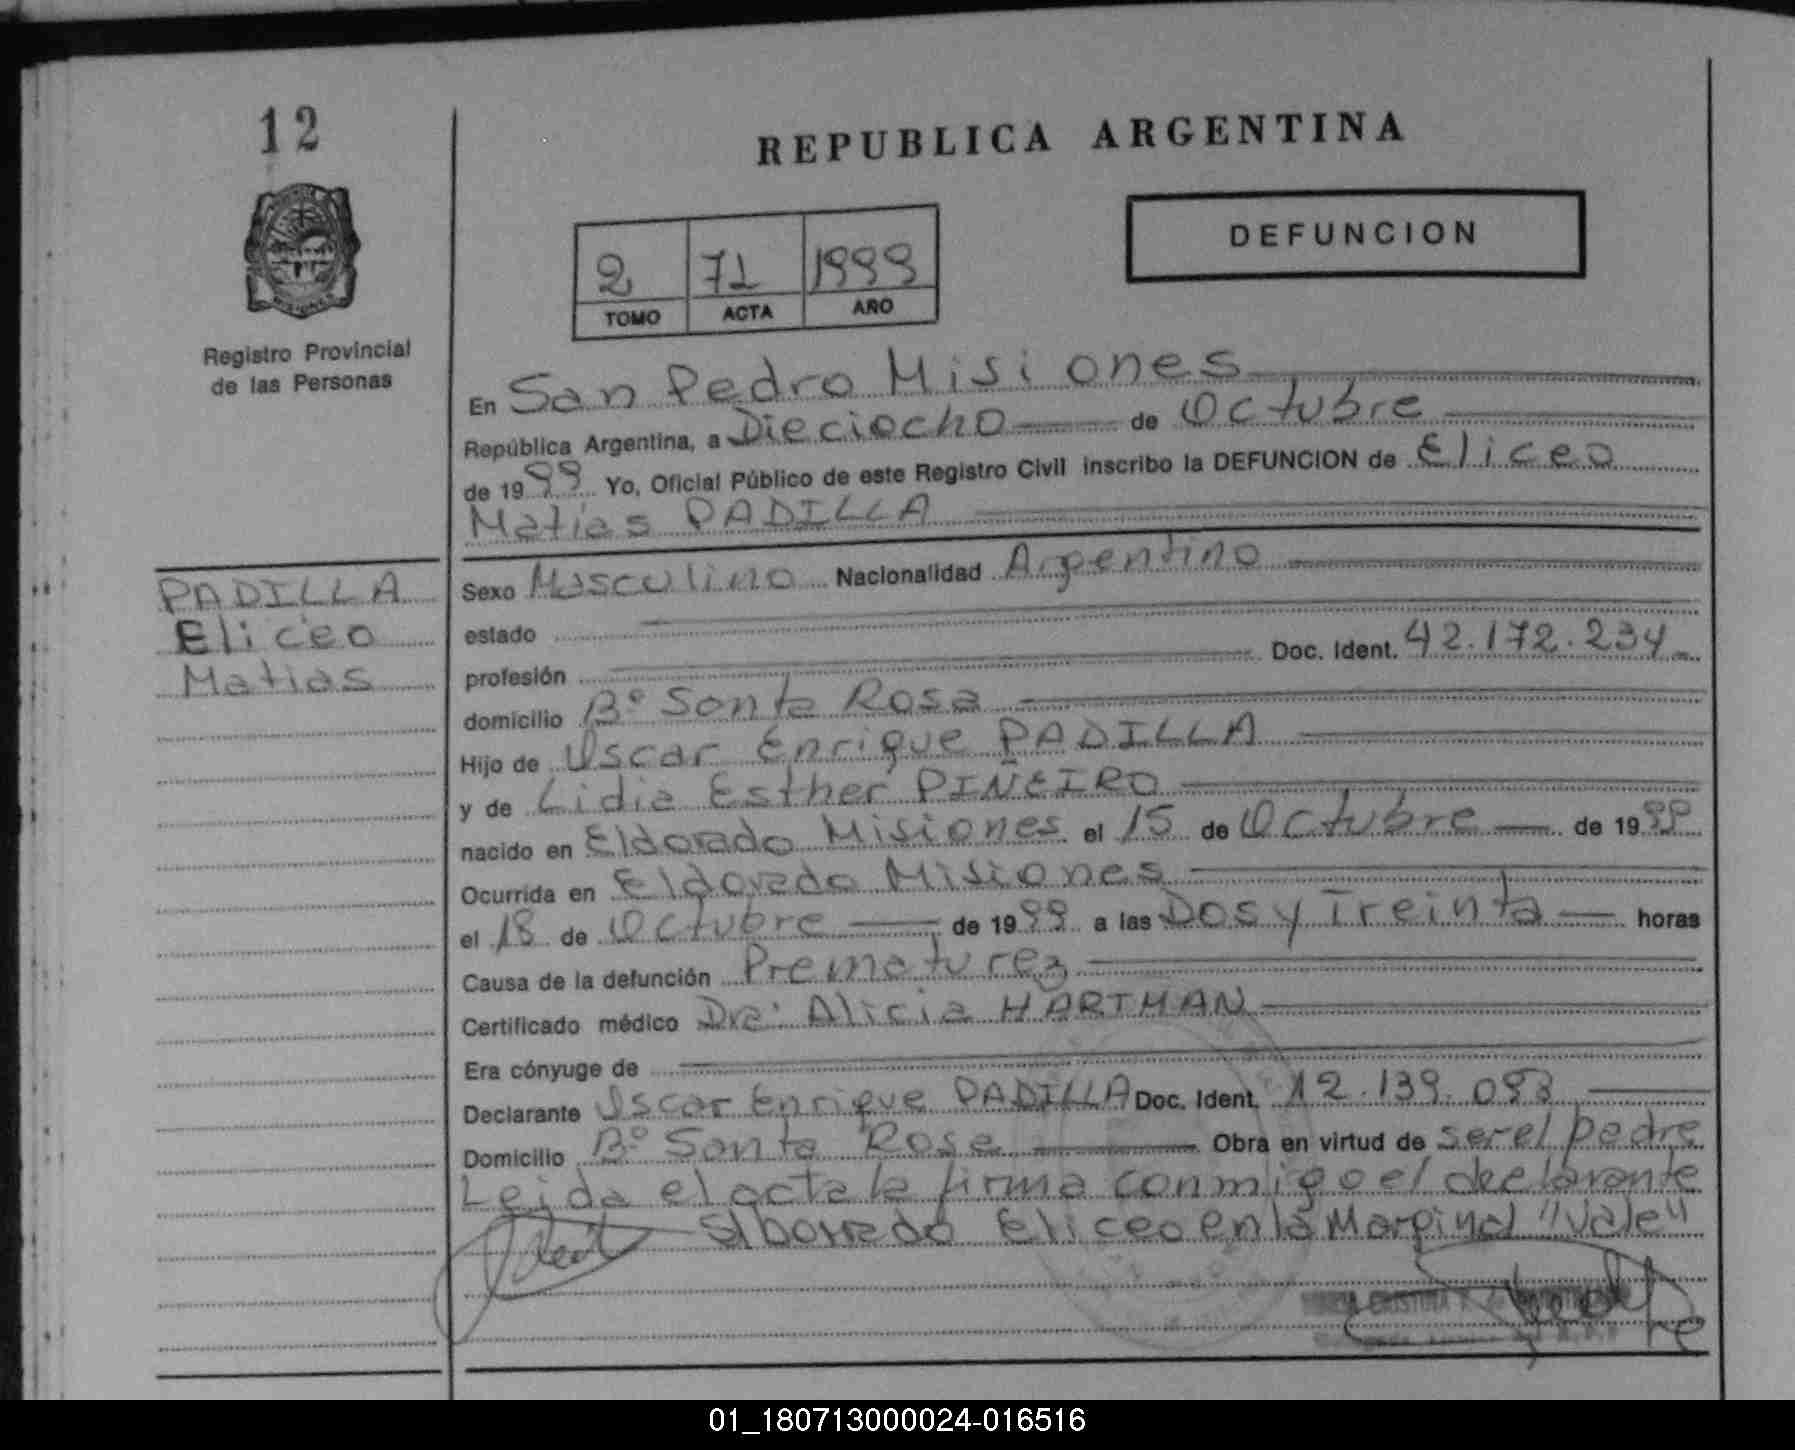 12
REPUBLICA ARGENTINA
DEFUNCION
2 71 1999
TOMO ACTA AÑO
Registro Provincial
de las Personas
En San Pedro Misiones
República Argentina, a Dieciocho de Octubre
de 1999 Yo, Oficial Público de este Registro Civil inscribo la DEFUNCION de Eliceo
Matias PADILLA
PADILLA
Eliceo
Matias
Sexo Masculino Nacionalidad Argentino
estado
profesión Doc. Ident. 42.172.234
domicilio B° Santa Rosa
Hijo de Oscar Enrique PADILLA
y de Lidia Esther PIÑEIRO
nacido en Eldorado Misiones el 15 de Octubre de 1999
Ocurrida en Eldorado Misiones
el 18 de Octubre de 1999 a las Dos y Treinta horas
Causa de la defunción Prematurez
Certificado médico Dra. Alicia HARTMAN
Era cónyuge de
Declarante Oscar Enrique PADILLA Doc. Ident. 12.139.093
Domicilio B° Santa Rosa Obra en virtud de ser el padre
Leida el acta la firma conmigo el declarante
El borrado Eliceo en la Marginal "Vale"
CRISTINA
01_180713000024-016516